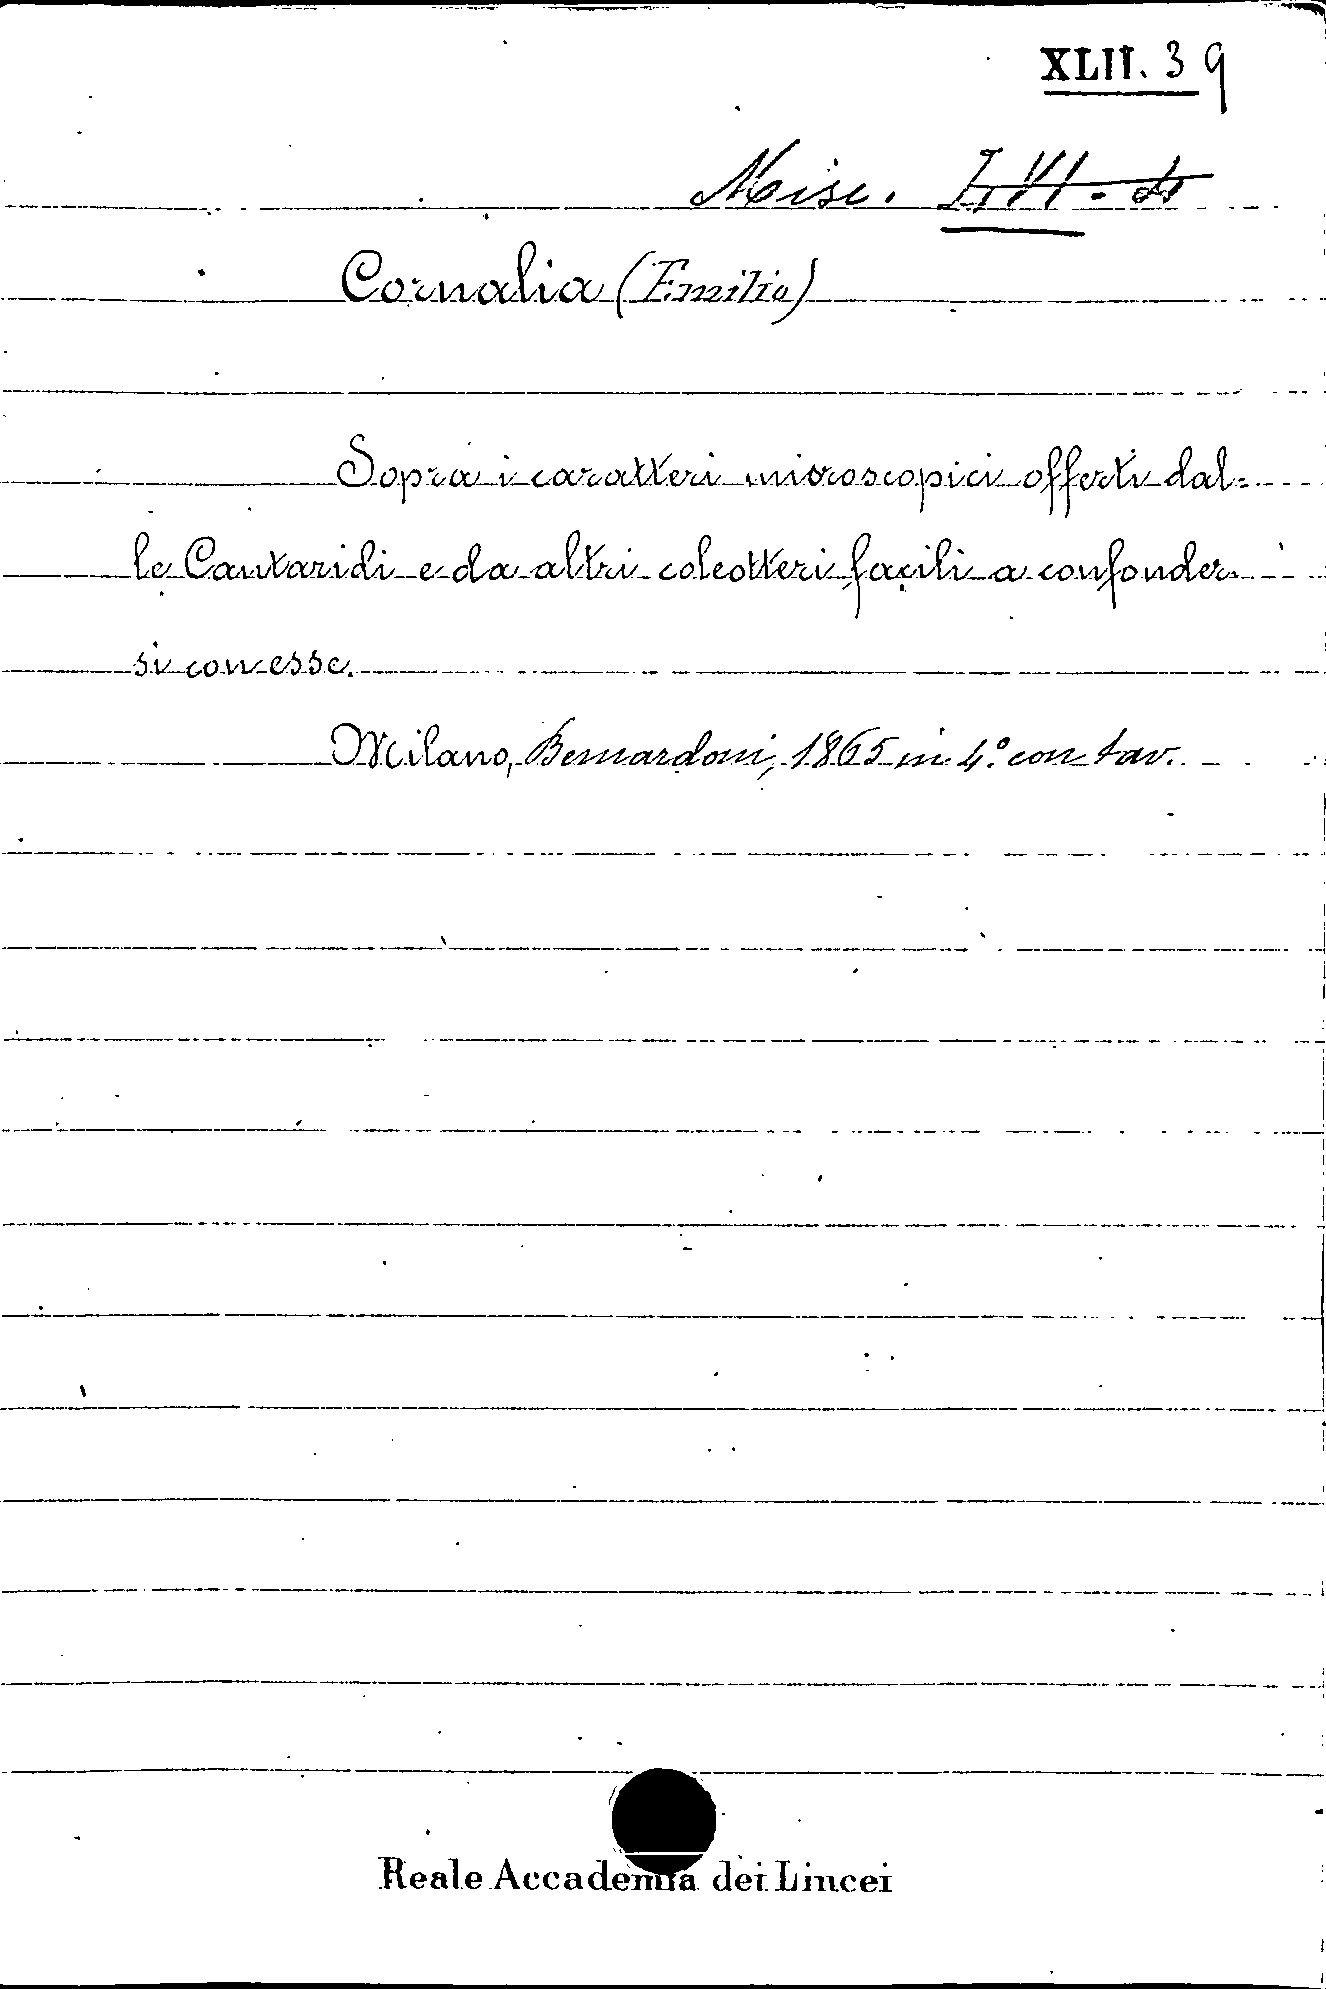 XLII. 39
Misc. LVI-4
Cornalia (Emilio)
Sopra i caratteri microscopici offerti dal=
le Cantaridi e da altri coleotteri facili a confonder
si con esse.
Milano, Bernardoni, 1865 in 4.° con tav.
Reale Accademia dei Lincei